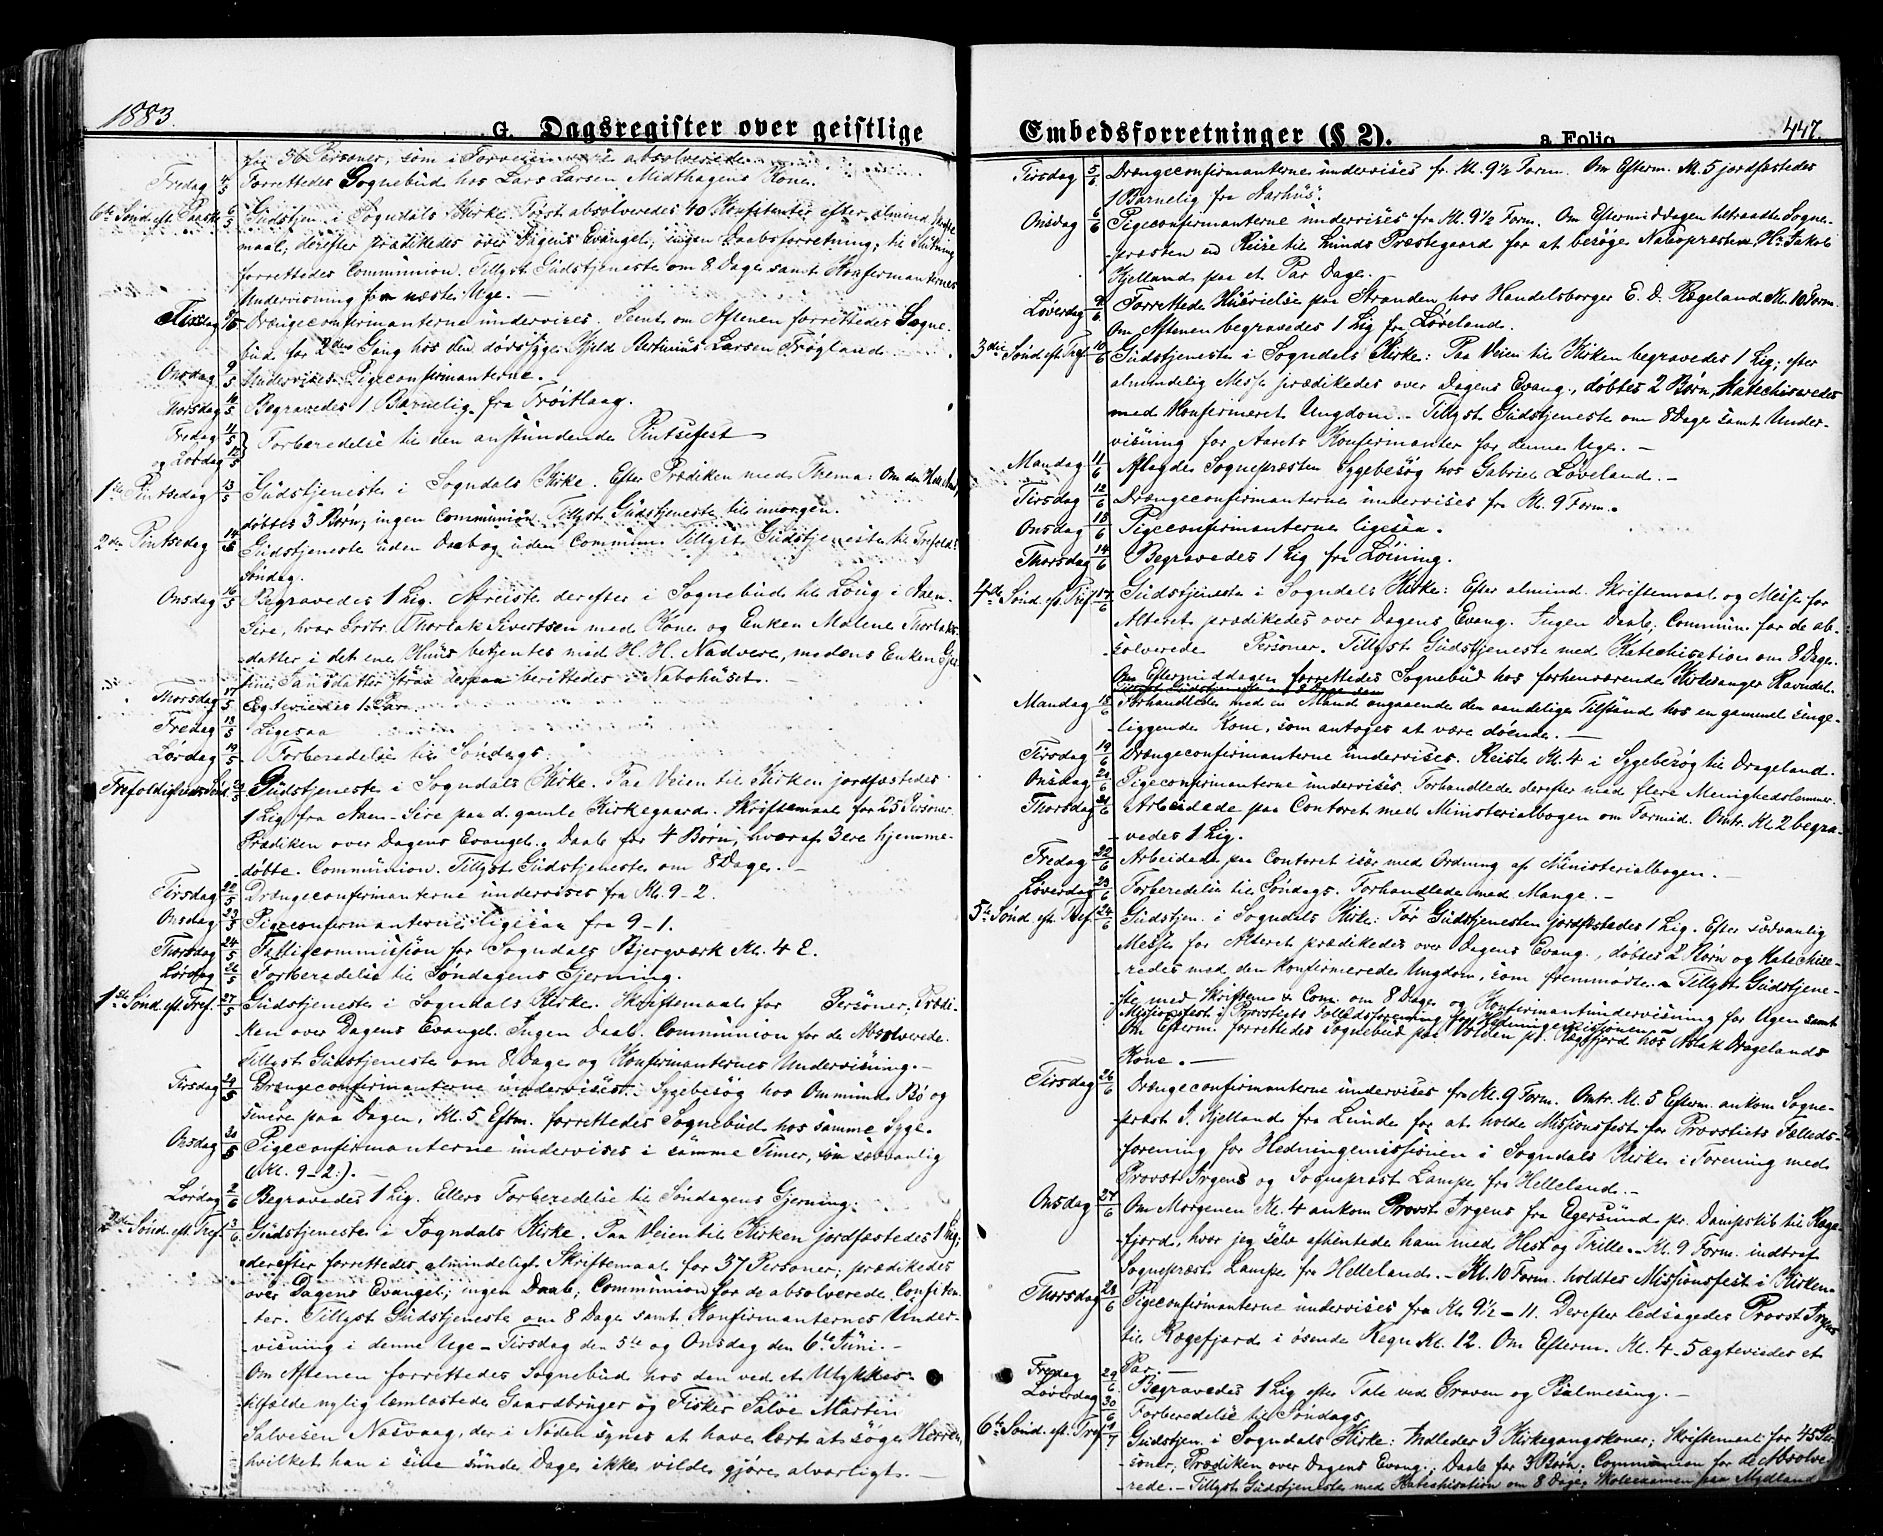 1883.
G. Dagsregister over geistlige
for 56 Personer, som i Forveien vare absolverede.
Fredag 4/5 Forrettedes Sognebud hos Lars Larsen Midthagens Kone.
6te Sønd. eft. Paaske 6/5 Gudstjen. i Sogndals Kirke. Først absolveredes 40 Konfitenter efter almind. Skrifte-
maal, derefter prædikedes over Dagens Evangel., ingen Daabsforretning; til Slutning
forrettedes Communion. Tillyst Gudstjeneste om 8 Dage samt Konfirmanternes
Undervisning for næste Uge. —
Tirsdag 8/5 Drængeconfirmanterne undervises. Seent om Aftenen forrettedes Sogne-
bud for 2den Gang hos den dødssyge Larsen Frøgland.
Onsdag 9/5 Undervises Pigeconfirmanterne.
Thorsdag 10/5 Begravedes 1 Barnelig fra Trøitlaag.
Fredag 11/5
og Lørdag 12/5 Forberedelse til den anstundende Pintsefest
1ste Pintsedag 13/5 Gudstjeneste i Sogndals Kirke. Efter Prædiken med Thema: Om den Hell. Aand,
døbtes 3 Børn; ingen Communion. Tillyst Gudstjeneste til imorgen.
2den Pintsedag 14/5 Gudstjeneste uden Daab og uden Commun. Tillyst Gudstjeneste til Trefold.
Søndag.
Onsdag 16/5 Begravedes 1 Lig. Afreiste derefter i Sognebud til Løug i Aaen-
Sire, hvor Grbr. Thorlak Sivertsen med Kone og Enken Malene Thorlaks-
datter i det ene Huus betjentes med H. H. Nadvere, medens Enken
Jansdatter strax derpaa berettedes i Nabohuset. —
Thorsdag 17/5 Ægteviedes 1 Par.
Fredag 18/5 Ligesaa
Lørdag 19/5 Forberedelse til Søndags.
Trefoldigheds Sønd. 20/5 Gudstjeneste i Sogndals Kirke. Paa Veien til Kirken jordfæstedes
1 Lig fra Aaen-Sire paa d. gamle Kirkegaard. Skriftemaal for 25 Personer.
Prædiken over Dagens Evangel. Daab for 4 Børn, hvoraf 3ere hjemme-
døbte. Communion. Tillyst Gudstjeneste om 8 Dage. —
Tirsdag 22/5 Drængeconfirmanterne undervises fra Kl. 9-2.
Onsdag 23/5 Pigeconfirmanterne ligesaa fra 9-1.
Thorsdag 24/5 Fattigcommission for Sogndals Bjergværk Kl. 4 E.
Lørdag 26/5 Forberedelse til Søndagens Gjerning.
1ste Sønd. eft. Tref. 27/5 Gudstjeneste i Sogndals Kirke. Skriftemaal for Personer, Prædi-
ken over Dagens Evangel. Ingen Daab. Communion for de Absolverede.
Tillyst Gudstjeneste om 8 Dage og Konfirmanternes Undervisning. —
Tirsdag 29/5 Drængeconfirmanterne undervises. Sygebesøg hos Ommund Bø og
senere paa Dagen, Kl. 5 Eftm. forrettedes Sognebud hos samme Syge.
Onsdag 30/5 Pigeconfirmanterne undervises i samme Timer, som sedvanlig
(Kl. 9-2:). —
Lørdag 2/6 Begravedes 1 Lig. Ellers Forberedelse til Søndagens Gjerning.
2den Sønd. eft. Tref. 3/6 Gudstjeneste i Sogndals Kirke. Paa Veien til Kirken jordfæstedes 1 Lig;
derefter forrettedes almindeligt Skriftemaal for 37 Personer; prædikedes
over Dagens Evangel.; ingen Daab; Communion for de absolverede Confiten-
ter. Tillyst Gudstjeneste om 8 Dage samt Konfirmanternes Under-
visning i denne Uge - Tirsdag den 5te og Onsdag den 6te Juni. —
Om Aftenen forrettedes Sognebud hos den ved et Ulykkes-
tilfælde nylig lemlæstede Gaardbruger og Fisker Salve Martin
Salvesen Nesvaag, der i Nøden synes at have lært at søge Herren,
hvilket han i sine sunde Dage ikke vilde gjøre alvorligt. —
Embedsforretninger (§ 2).
a. Folio
447.
Tirsdag 5/6 Drængeconfirmanterne undervises fr. Kl. 9½ Form. Om Efterm. Kl. 5 jordfæstedes
1 Barnelig fra Aarhus.
Onsdag 6/6 Pigeconfirmanterne undervises fra Kl. 9½ Form. Om Eftermiddagen betraadte Sogne-
præsten en Reise til Lunds Præstegaard for at besøge Nabopræsten Hr. Jakob
Kjelland paa et Par Dage. —
Løverdag 9/6 Forrettede Husvielse paa Stranden hos Handelsborger E. D. Rægeland Kl. 10 Form.
Om Aftenen begravedes 1 Lig fra Løveland.
3die Sønd. eft. Tref. 10/6 Gudstjeneste i Sogndals Kirke: Paa Veien til Kirken begravedes 1 Lig; efter
almindelig Messe prædikedes over Dagens Evang., døbtes 2 Børn, Katechiseredes
med konfirmeret Ungdom. — Tillyst Gudstjeneste om 8 Dage samt Under-
visning for Aarets Konfirmanter for denne Uge. —
Mandag 11/6 Aflagdes Sognepræsten Sygebesøg hos Gabriel Løveland. —
Tirsdag 12/6 Drængeconfirmanterne undervises fra Kl. 9 Form.
Onsdag 13/6 Pigeconfirmanterne ligesaa.
Thorsdag 14/6 Begravedes 1 Lig fra Løining.
4de Sønd. eft. Tref. 17/6 Gudstjeneste i Sogndals Kirke: Efter almind. Skriftemaal og Messe for
Alteret prædikedes over Dagens Evang. Ingen Daab; Commun. for de ab-
solverede Personer. Tillyst Gudstjeneste med Katechisation om 8 Dage.
Om Eftermiddagen forrettedes Sognebud hos forhenværende Kirkesanger Ravndal.
Mandag 18/6 Forhandledes med en Mand angaaende den aandelige Tilstand hos en gammel senge-
liggende Kone, som antages at være døende. —
Tirsdag 19/6 Drængeconfirmanterne undervises. Reiste Kl. 4 i Sygebesøg til Drageland.
Onsdag 20/6 Pigeconfirmanterne undervises. Forhandlede derefter med flere Menighedslemmer.
Thorsdag 21/6 Arbeidede paa Contoret med Ministerialbogen om Formid. Omtr. Kl. 2 begra-
vedes 1 Lig.
Fredag 22/6 Arbeidede paa Contoret især med Ordning af Ministerialbogen. —
Løverdag 23/6 Forberedelse til Søndags. Forhandlede med Mange. —
5te Sønd. eft. Tref. 24/6 Gudstjen. i Sogndals Kirke: Før Gudstjenesten jordfæstedes 1 Lig. Efter sedvanlig
Messe for Alteret prædikedes over Dagens Evang., døbtes 2 Børn og Katechise-
redes med den konfirmerede Ungdom, som fremmødte. — Tillyst Gudstjene-
ste med Skriftem. & Com. om 8 Dage og Konfirmantundervisning for Ugen samt
Missionsfest i Provstiets Fælledsforening for Hedningemissionen. —
Om Efterm. forrettedes Sognebud paa Volden pr. Rægefjord hos Aslak Dragelands
Kone. —
Tirsdag 26/6 Drængeconfirmanterne undervises fra Kl. 9 Form. Omtr. Kl. 5 Efterm. ankom Sogne-
præst J. Kjelland fra Lunde for at holde Missionsfest for Provstiets Fælleds-
forening for Hedningemissionen i Sogndals Kirke i Forening med
Provst Irgens og Sognepræst Lampe fra Helleland. —
Onsdag 27/6 Om Morgenen Kl. 4 ankom Provst Irgens fra Egersund pr. Dampskib til Ræge-
fjord, hvor jeg selv afhentede ham med Hest og Trille. Kl. 9 Form. indtraf
Sognepræst Lampe fra Helleland. — Kl. 10 Form. holdtes Missionsfest i Kirken.
Thorsdag 28/6 Pigeconfirmanterne undervises fra Kl. 9½ - 11. Derefter ledsagedes Provst Irgens
til Rægefjord i øsende Regn Kl. 12. Om Efterm. Kl. 4-5 ægteviedes et
Par. —
Fredag 29/6 Begravedes 1 Lig efter Tale ved Graven og Psalmesang. —
Løverdag 30/6 Forberedelse til Søndags.
6te Sønd. eft. Tref. 1/7 Gudstjen. i Sogndals Kirke: Indleder 3 Kirkegangskoner; Skriftemaal for 45 Per-
soner; Prædiken over Dagens Evang.; Daab for 3 Børn; Communion for de Absolve-
rede. — Tillyst Gudstjeneste med Katechisation om 8 Dage; Skoleexamen paa Mydland